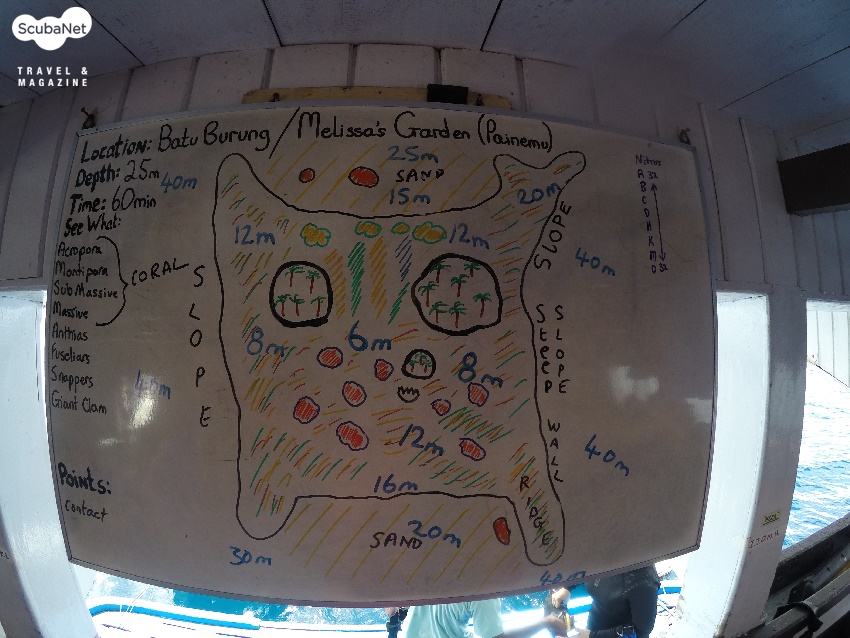 ScubaNet
TRAVEL &
MAGAZINE
Location: Batu Burung / Melissa's Garden (Painemu)
Depth: 25m
Time: 60min
See What:
Acropora
Montipora
Sub Massive
Massive
CORAL
Anthias
Fuseliars
Snappers
Giant Clam
Points:
contact
40m
SLOPE
30m
25m
SAND
15m
20m
12m
12m
8m
6m
8m
12m
16m
SAND
20m
RIDGE
40m
SLOPE
STEEP
SLOPE
WALL
40m
40m
Nitrox
A 32
B
C
D
H
K
M
O 32